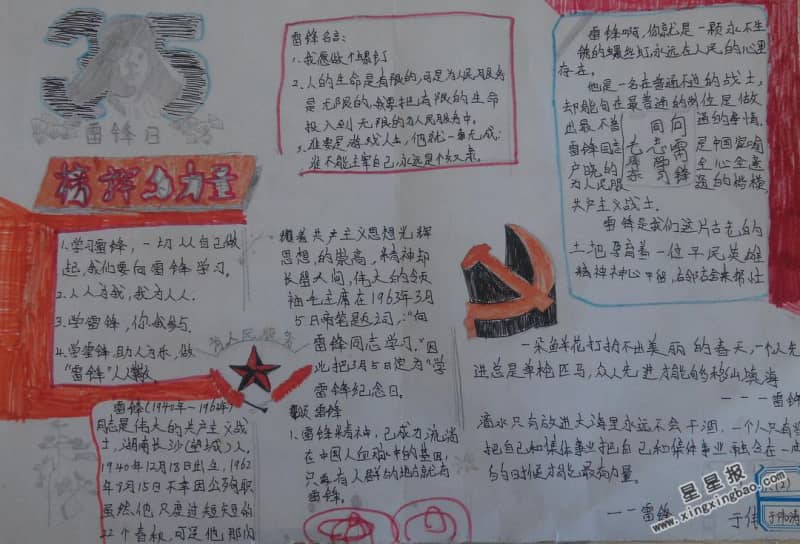 35
雷锋日
榜样的力量
1.学习雷锋，一切从自己做
起，我们要向雷锋学习。
2.人人为我，我为人人.
3.学雷锋，你我参与
4.学雷锋，助人为乐，做
“雷锋”人人
为人民服务
雷锋(1940年-1962年)
同志是伟大的共产主义战
士，湖南长沙(望城)人。
1940年12月18日出生，1962
年8月15日不幸因公殉职
虽然他，只度过短短的
22个春秋，可是他那内
雷锋名言:
1.我愿做个螺钉
2.人的生命是有限的，可是为人民服务
是无限的，我要把有限的生命
投入到无限的为人民服务中。
3.谁要是游戏人生，他就一事无成:
谁不能主宰自己，永远是个奴隶。
共产主义思想光辉
思想的崇高，精神却
长留人间，伟大的领
袖毛主席在1963年3月
5日帝笔题词:“向
雷锋同志学习。”因
此把3月5日定为“学
雷锋纪念日。
雷锋
1.雷锋精神，已成为流淌
在中国人血脉中的基因，
只要有人群的地方就有
雷锋。
雷锋啊，你就是一颗永不生
锈的螺丝钉永远在人民的心里
存在。
他是一名在普通不过的战士，
却能句在最普通的岗位是做
出最不普通的事情.
雷锋同志是中国家喻
户晓的全心全意
为人民服
共产主义战士.
向雷锋
同志学习
毛
雷锋是我们这片古老的
土地孕育着一位平民英雄
一朵鲜花打扮不出美丽的春天，一个人先
进总是单枪匹马，众人先进才能的移山填海
---雷
滴水只有放进大海里永远不会干涸，一个人只有当
把自己和集体事业把自己和集体事业融合在一
的时候才能最有力量。
--雷锋
于伟
星星报
www.xingxingbao.com